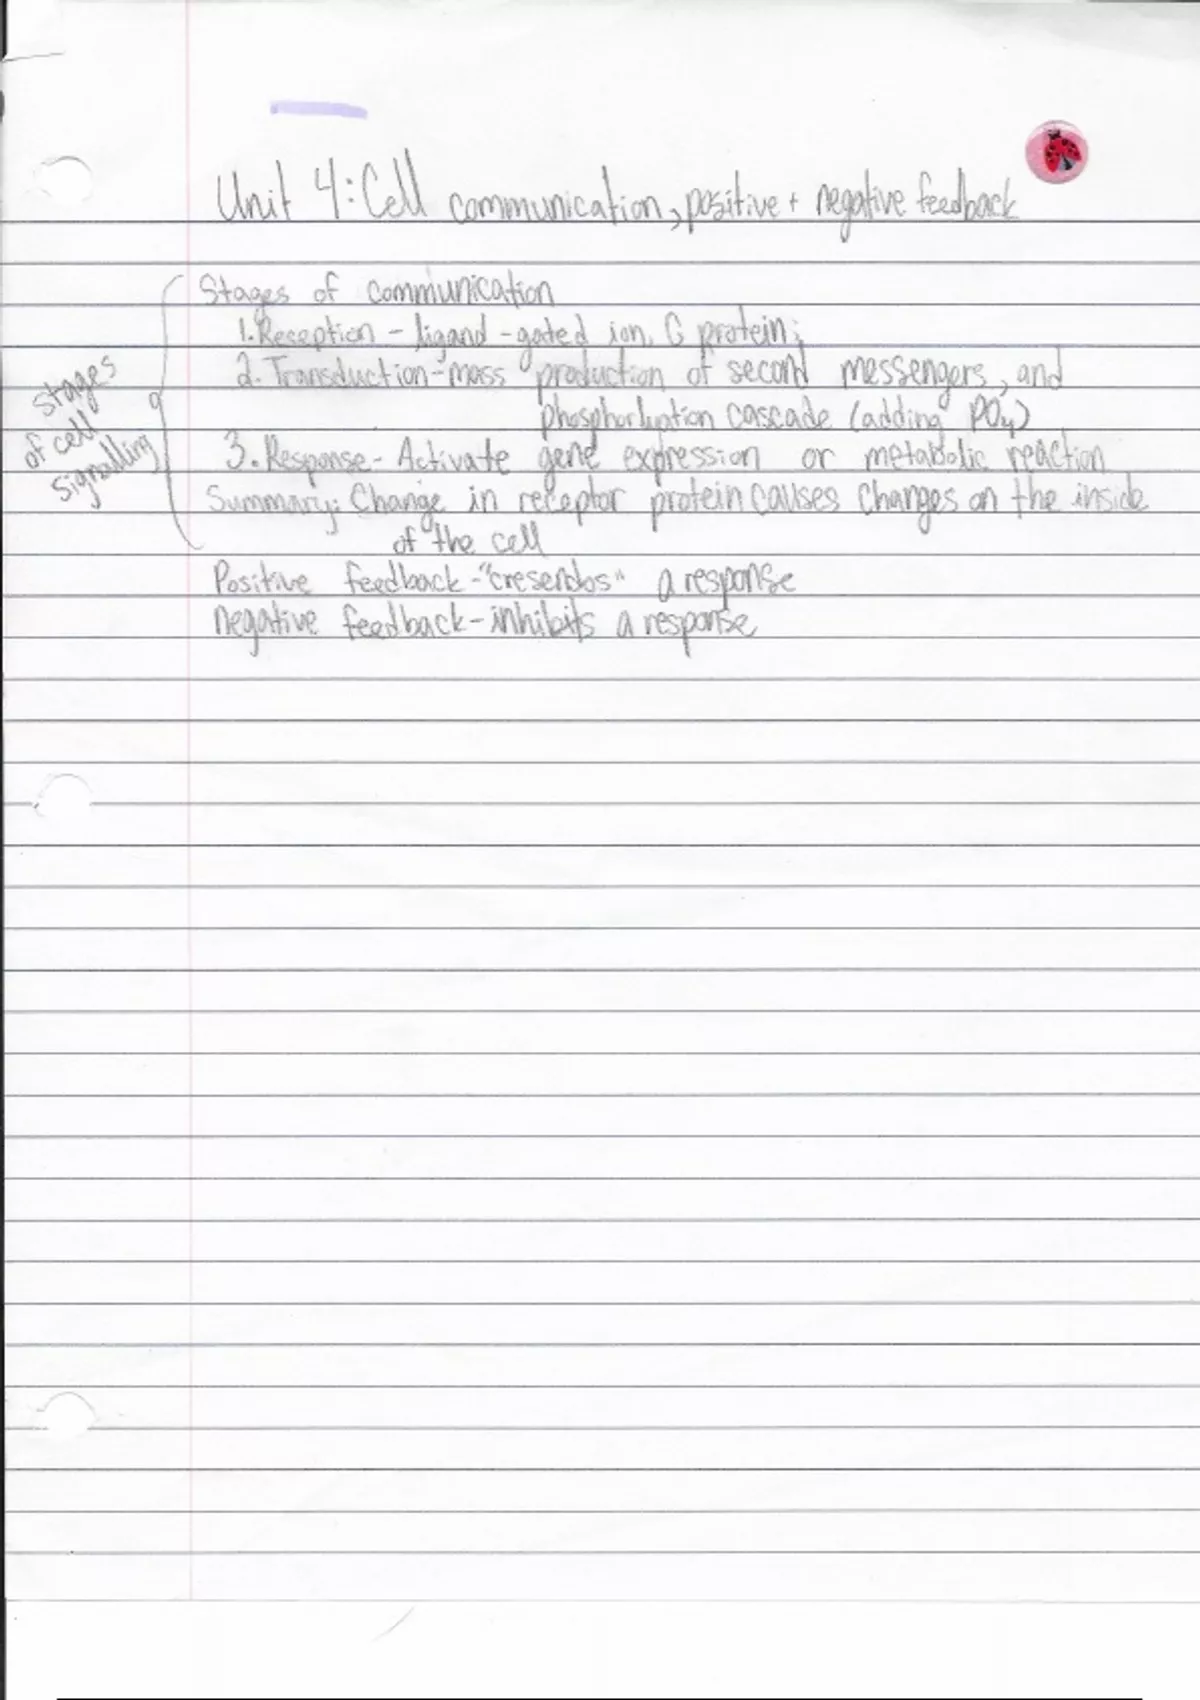 Unit 4: Cell communication, positive + negative feedback
Stages of communication
1. Reception - ligand-gated ion, G protein;
2. Transduction - mass production of second messengers, and
phosphorlyation cascade (adding PO4)
3. Response - Activate gene expression or metabolic reaction
Summary: Change in receptor protein causes changes on the inside
of the cell
stages
of cell
signalling
Positive feedback - "cresendos" a response
negative feedback - inhibits a response